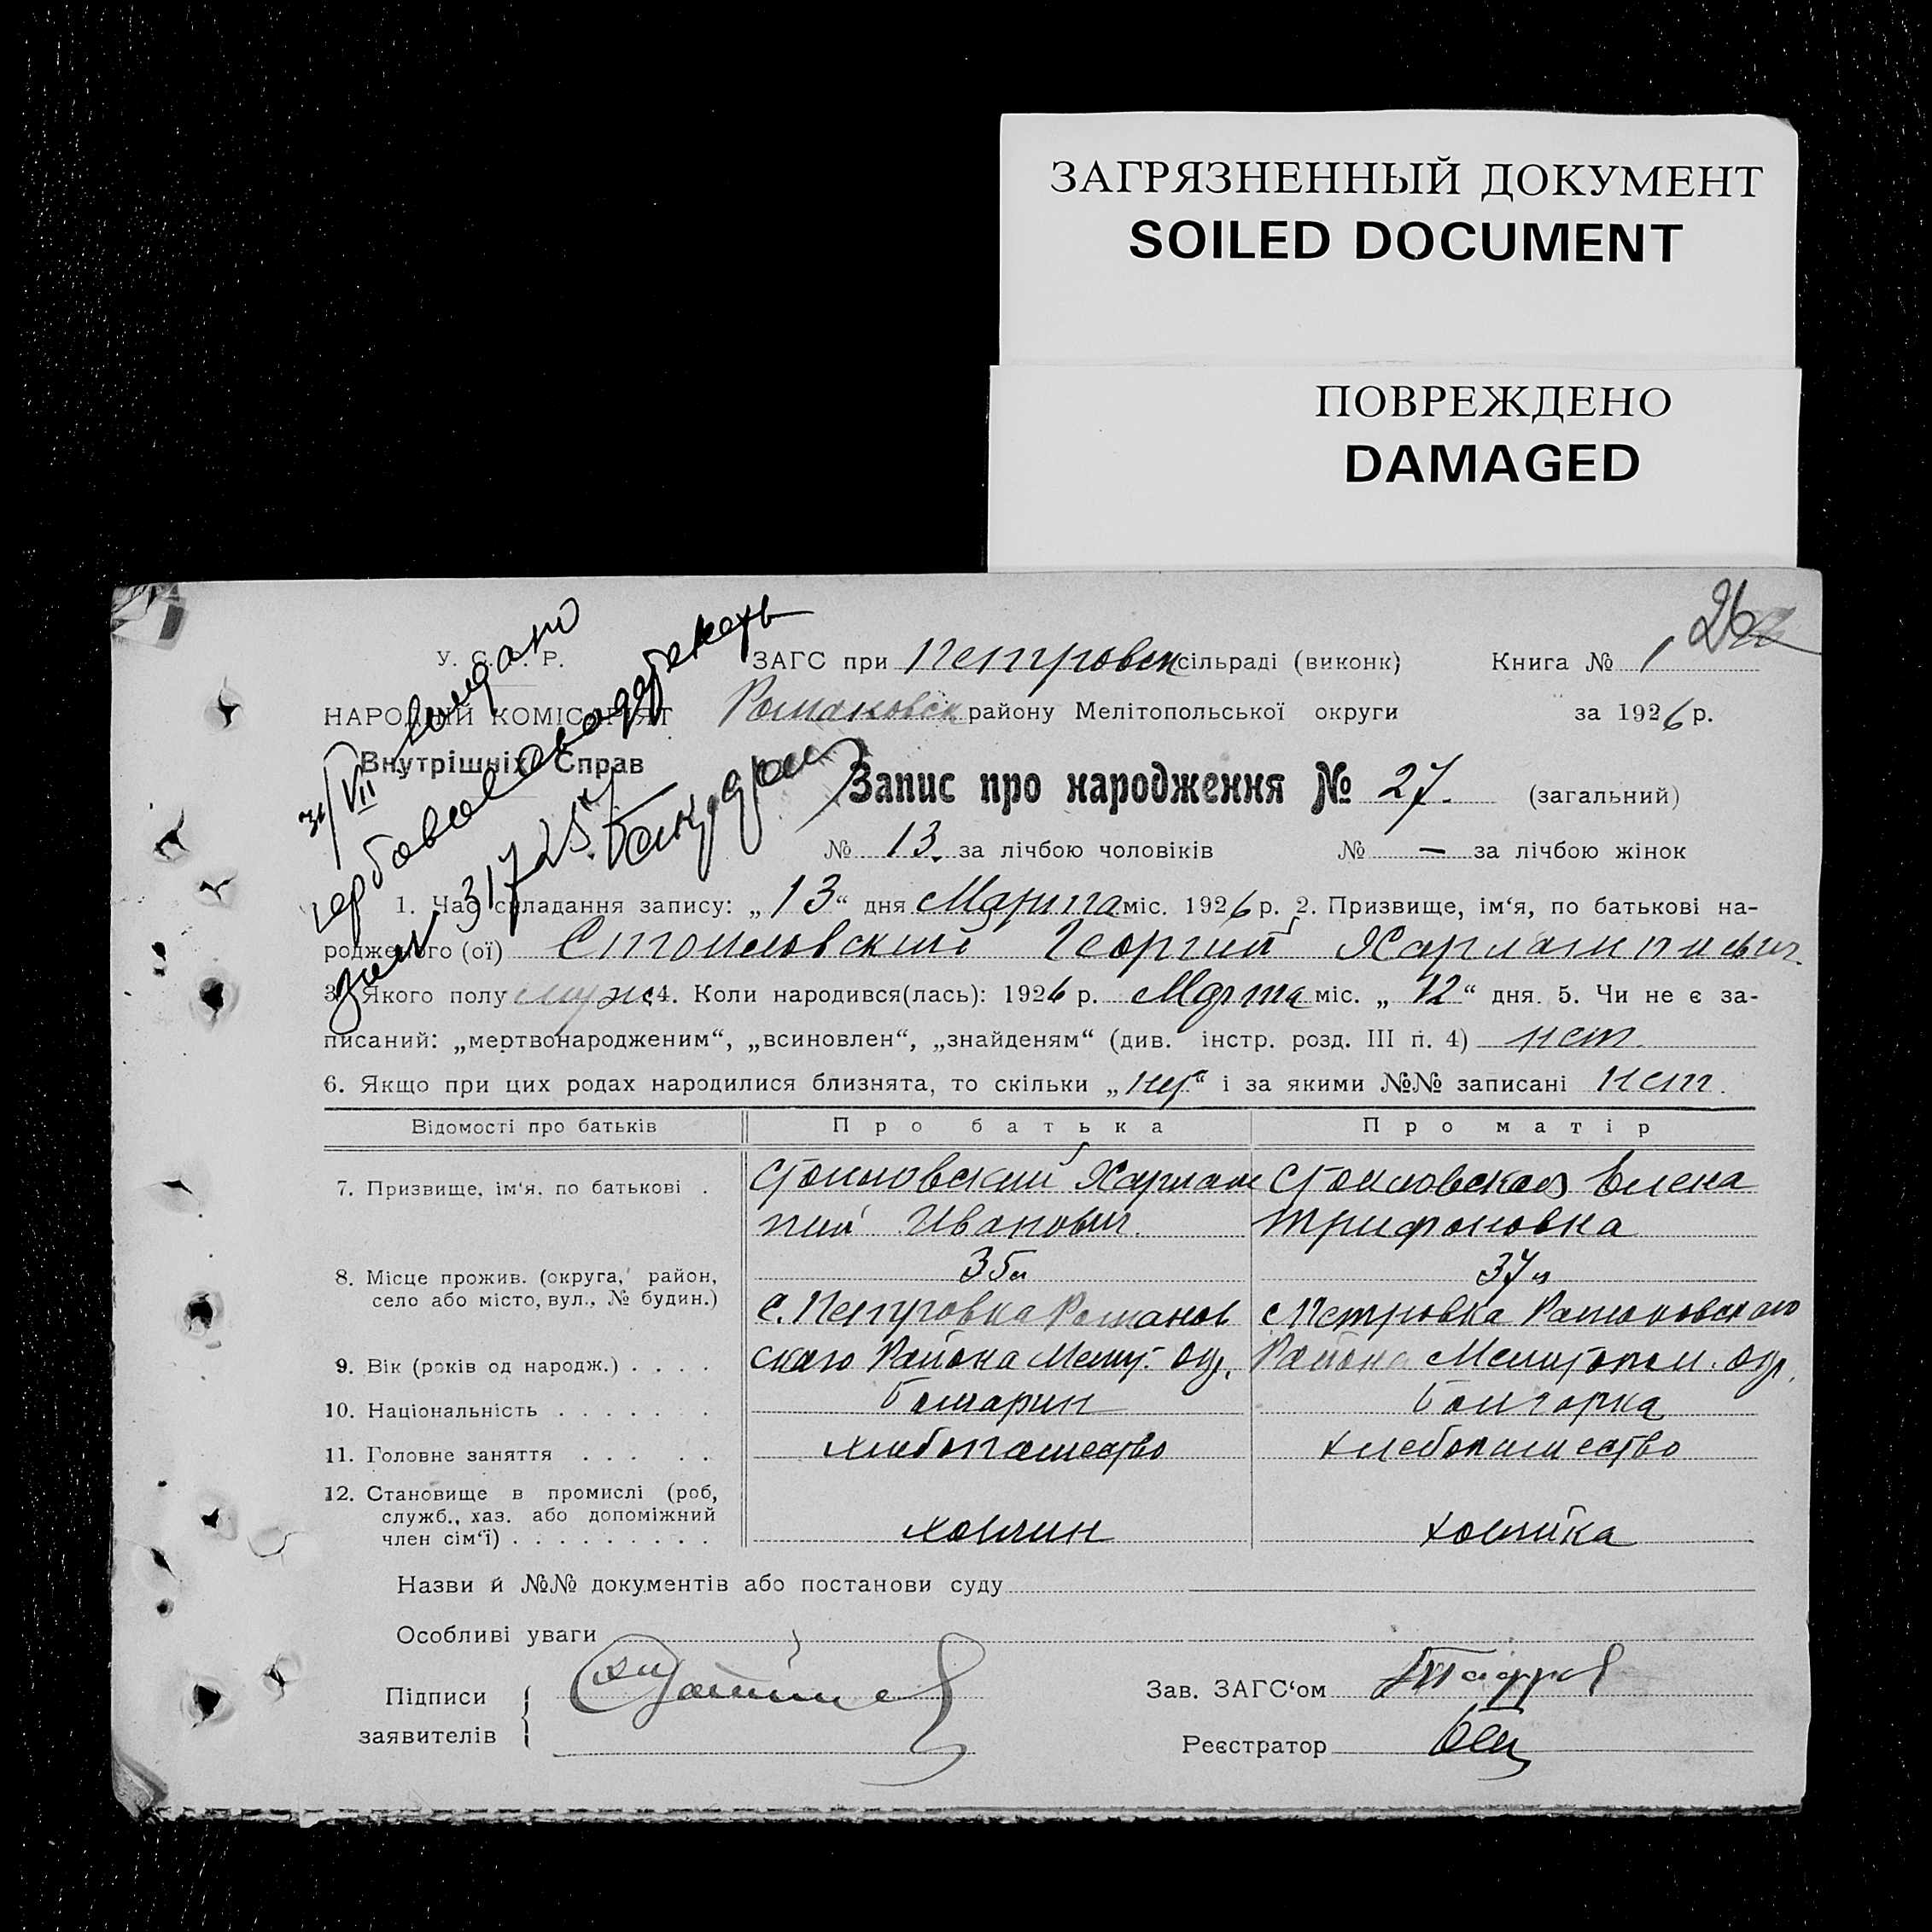 ЗАГРЯЗНЕННЫЙ ДОКУМЕНТ
SOILED DOCUMENT
ПОВРЕЖДЕНО
DAMAGED
26
У. С. Р. Р.
ЗАГС при Петровск сільраді (виконк) Книга № 1
НАРОДНІЙ КОМІСАРІЯТ Романовск району Мелітопольської округи за 1926 р.
Внутрішніх Справ
Запис про народження № 27. (загальний)
№ 13. за лічбою чоловіків № — за лічбою жінок
31/VII
1. Час складання запису: „13“ дня Марта міс. 1926 р. 2. Призвище, ім‘я, по батькові на-
родженого (ої) Стоиловский Георгий Харлампиевич
3. Якого полу муж. 4. Коли народився(лась): 1926 р. Марта міс. „12“ дня. 5. Чи не є за-
писаний: „мертвонародженим“, „всиновлен“, „знайденям“ (див. інстр. розд. III п. 4) нет
6. Якщо при цих родах народилися близнята, то скільки „нет“ і за якими №№ записані нет.
Відомості про батьків Про батька Про матір
7. Призвище, ім‘я, по батькові . Стоиловский Харлам Стоиловская Елена
пий Иванович. Трифоновна
35 37
8. Місце прожив. (округа, район,
село або місто, вул., № будин.) С. Петровка Романов с Петровка Романовского
9. Вік (років од народж.) . . . . ского Района Мелит. окр. Района Мелитопол. окр.
10. Національність . . . . . . . Болгарин Болгарка
11. Головне заняття . . . . . хлебопашество хлебопашество
12. Становище в промислі (роб,
служб., хаз. або допоміжний
член сім‘ї) . . . . . . . . . хозяин хозяйка
Назви й №№ документів або постанови суду
Особливі уваги
Підписи
заявителів
Зав. ЗАГС‘ом
Реєстратор